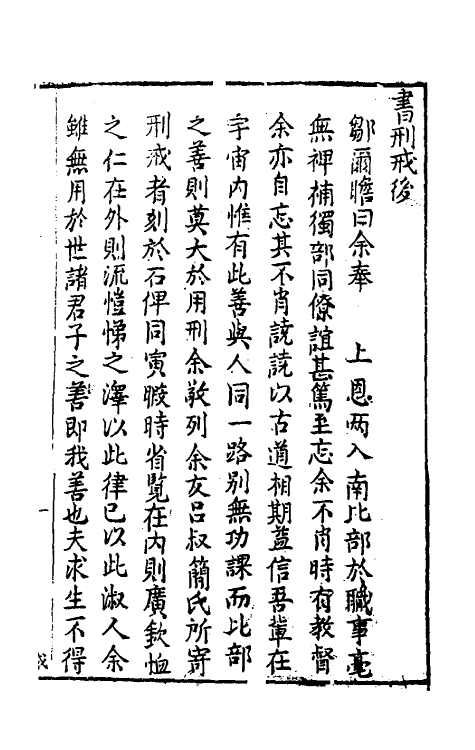 書刑戒後
鄒爾瞻曰余奉　上恩两入南比部於職事毫
無裨補獨部同僚誼甚篤至忘余不肖時有教督
余亦自忘其不肖譊譊以古道相期葢信吾軰在
宇宙内惟有此善與人同一路别無功課而比部
之善則莫大於用刑余敢列余友吕叔簡氏所寄
刑戒者刻於石俾同寅暇時省覧在内則廣欽恤
之仁在外則流愷悌之澤以此律已以此淑人余
雖無用於世諸君子之善即我善也夫求生不得
一